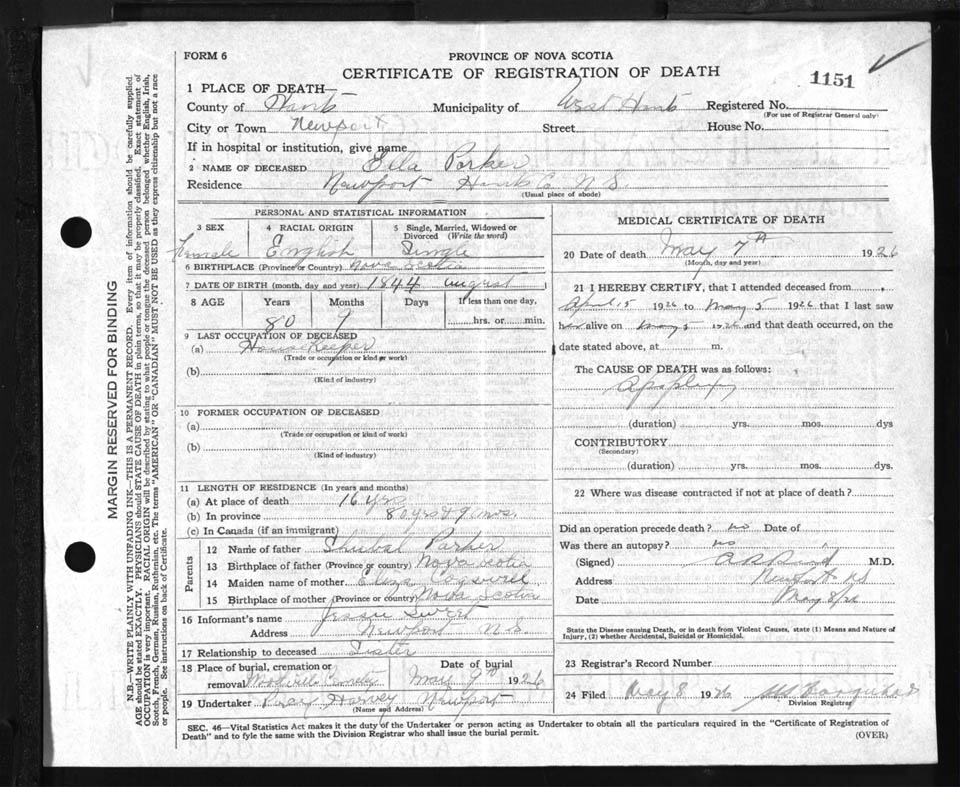 FORM 6
PROVINCE OF NOVA SCOTIA
CERTIFICATE OF REGISTRATION OF DEATH
1151
1 PLACE OF DEATH—
County of Hants Municipality of West Hants Registered No.
(For use of Registrar General only)
City or Town Newport Street House No.
If in hospital or institution, give name
2 NAME OF DECEASED Parker
Residence Newport Hants Co. N.S.
(Usual place of abode)
PERSONAL AND STATISTICAL INFORMATION
3 SEX 4 RACIAL ORIGIN 5 Single, Married, Widowed or Divorced (Write the word)
Female English Single
6 BIRTHPLACE (Province or Country) Nova Scotia
7 DATE OF BIRTH (month, day and year) 1844 august
8 AGE Years Months Days If less than one day,
80 9 hrs. or min.
9 LAST OCCUPATION OF DECEASED
(a) Housekeeper
(Trade or occupation or kind or work)
(b)
(Kind of industry)
10 FORMER OCCUPATION OF DECEASED
(a)
(Trade or occupation or kind of work)
(b)
(Kind of industry)
11 LENGTH OF RESIDENCE (In years and months)
(a) At place of death 16 yrs
(b) In province 80 yrs & 9 mos.
(c) In Canada (if an immigrant)
Parents
12 Name of father Shubal Parker
13 Birthplace of father (Province or country) Nova Scotia
14 Maiden name of mother Eliza Cogswell
15 Birthplace of mother (Province or country) Nova Scotia
16 Informant's name Jessie Sweet
Address Newport N.S.
17 Relationship to deceased Sister
18 Place of burial, cremation or removal Date of burial
May 9th 1926
19 Undertaker Percy Harvey Newport
(Name and Address)
MEDICAL CERTIFICATE OF DEATH
20 Date of death May 7th 1926
(Month, day and year)
21 I HEREBY CERTIFY, that I attended deceased from
April 15 1926 to May 5 1926 that I last saw
her alive on May 5 1926 and that death occurred, on the
date stated above, at m.
The CAUSE OF DEATH was as follows:
Apoplexy
(duration) yrs. mos. dys
CONTRIBUTORY
(Secondary)
(duration) yrs. mos. dys.
22 Where was disease contracted if not at place of death?
Did an operation precede death? no Date of
Was there an autopsy? no
(Signed) M.D.
Address Newport NS
Date May 8/26
State the Disease causing Death, or in death from Violent Causes, state (1) Means and Nature of Injury, (2) whether Accidental, Suicidal or Homicidal.
23 Registrar's Record Number
24 Filed May 8 1926
Division Registrar
SEC. 46—Vital Statistics Act makes it the duty of the Undertaker or person acting as Undertaker to obtain all the particulars required in the "Certificate of Registration of
Death" and to fyle the same with the Division Registrar who shall issue the burial permit.
(OVER)
MARGIN RESERVED FOR BINDING
N.B.—WRITE PLAINLY WITH UNFADING INK—THIS IS A PERMANENT RECORD. Every item of information should be carefully supplied
AGE should be stated EXACTLY. PHYSICIANS should STATE CAUSE OF DEATH in plain terms, so that it may be properly classified. Exact statement of
OCCUPATION is very important. RACIAL ORIGIN will be described by stating to what people or tongue the deceased person belonged whether English, Irish,
Scotch, French, German, Russian, Ruthenian, etc. The terms "AMERICAN" OR "CANADIAN" MUST NOT BE USED as they express citizenship but not a race
or people. See instructions on back of Certificate.